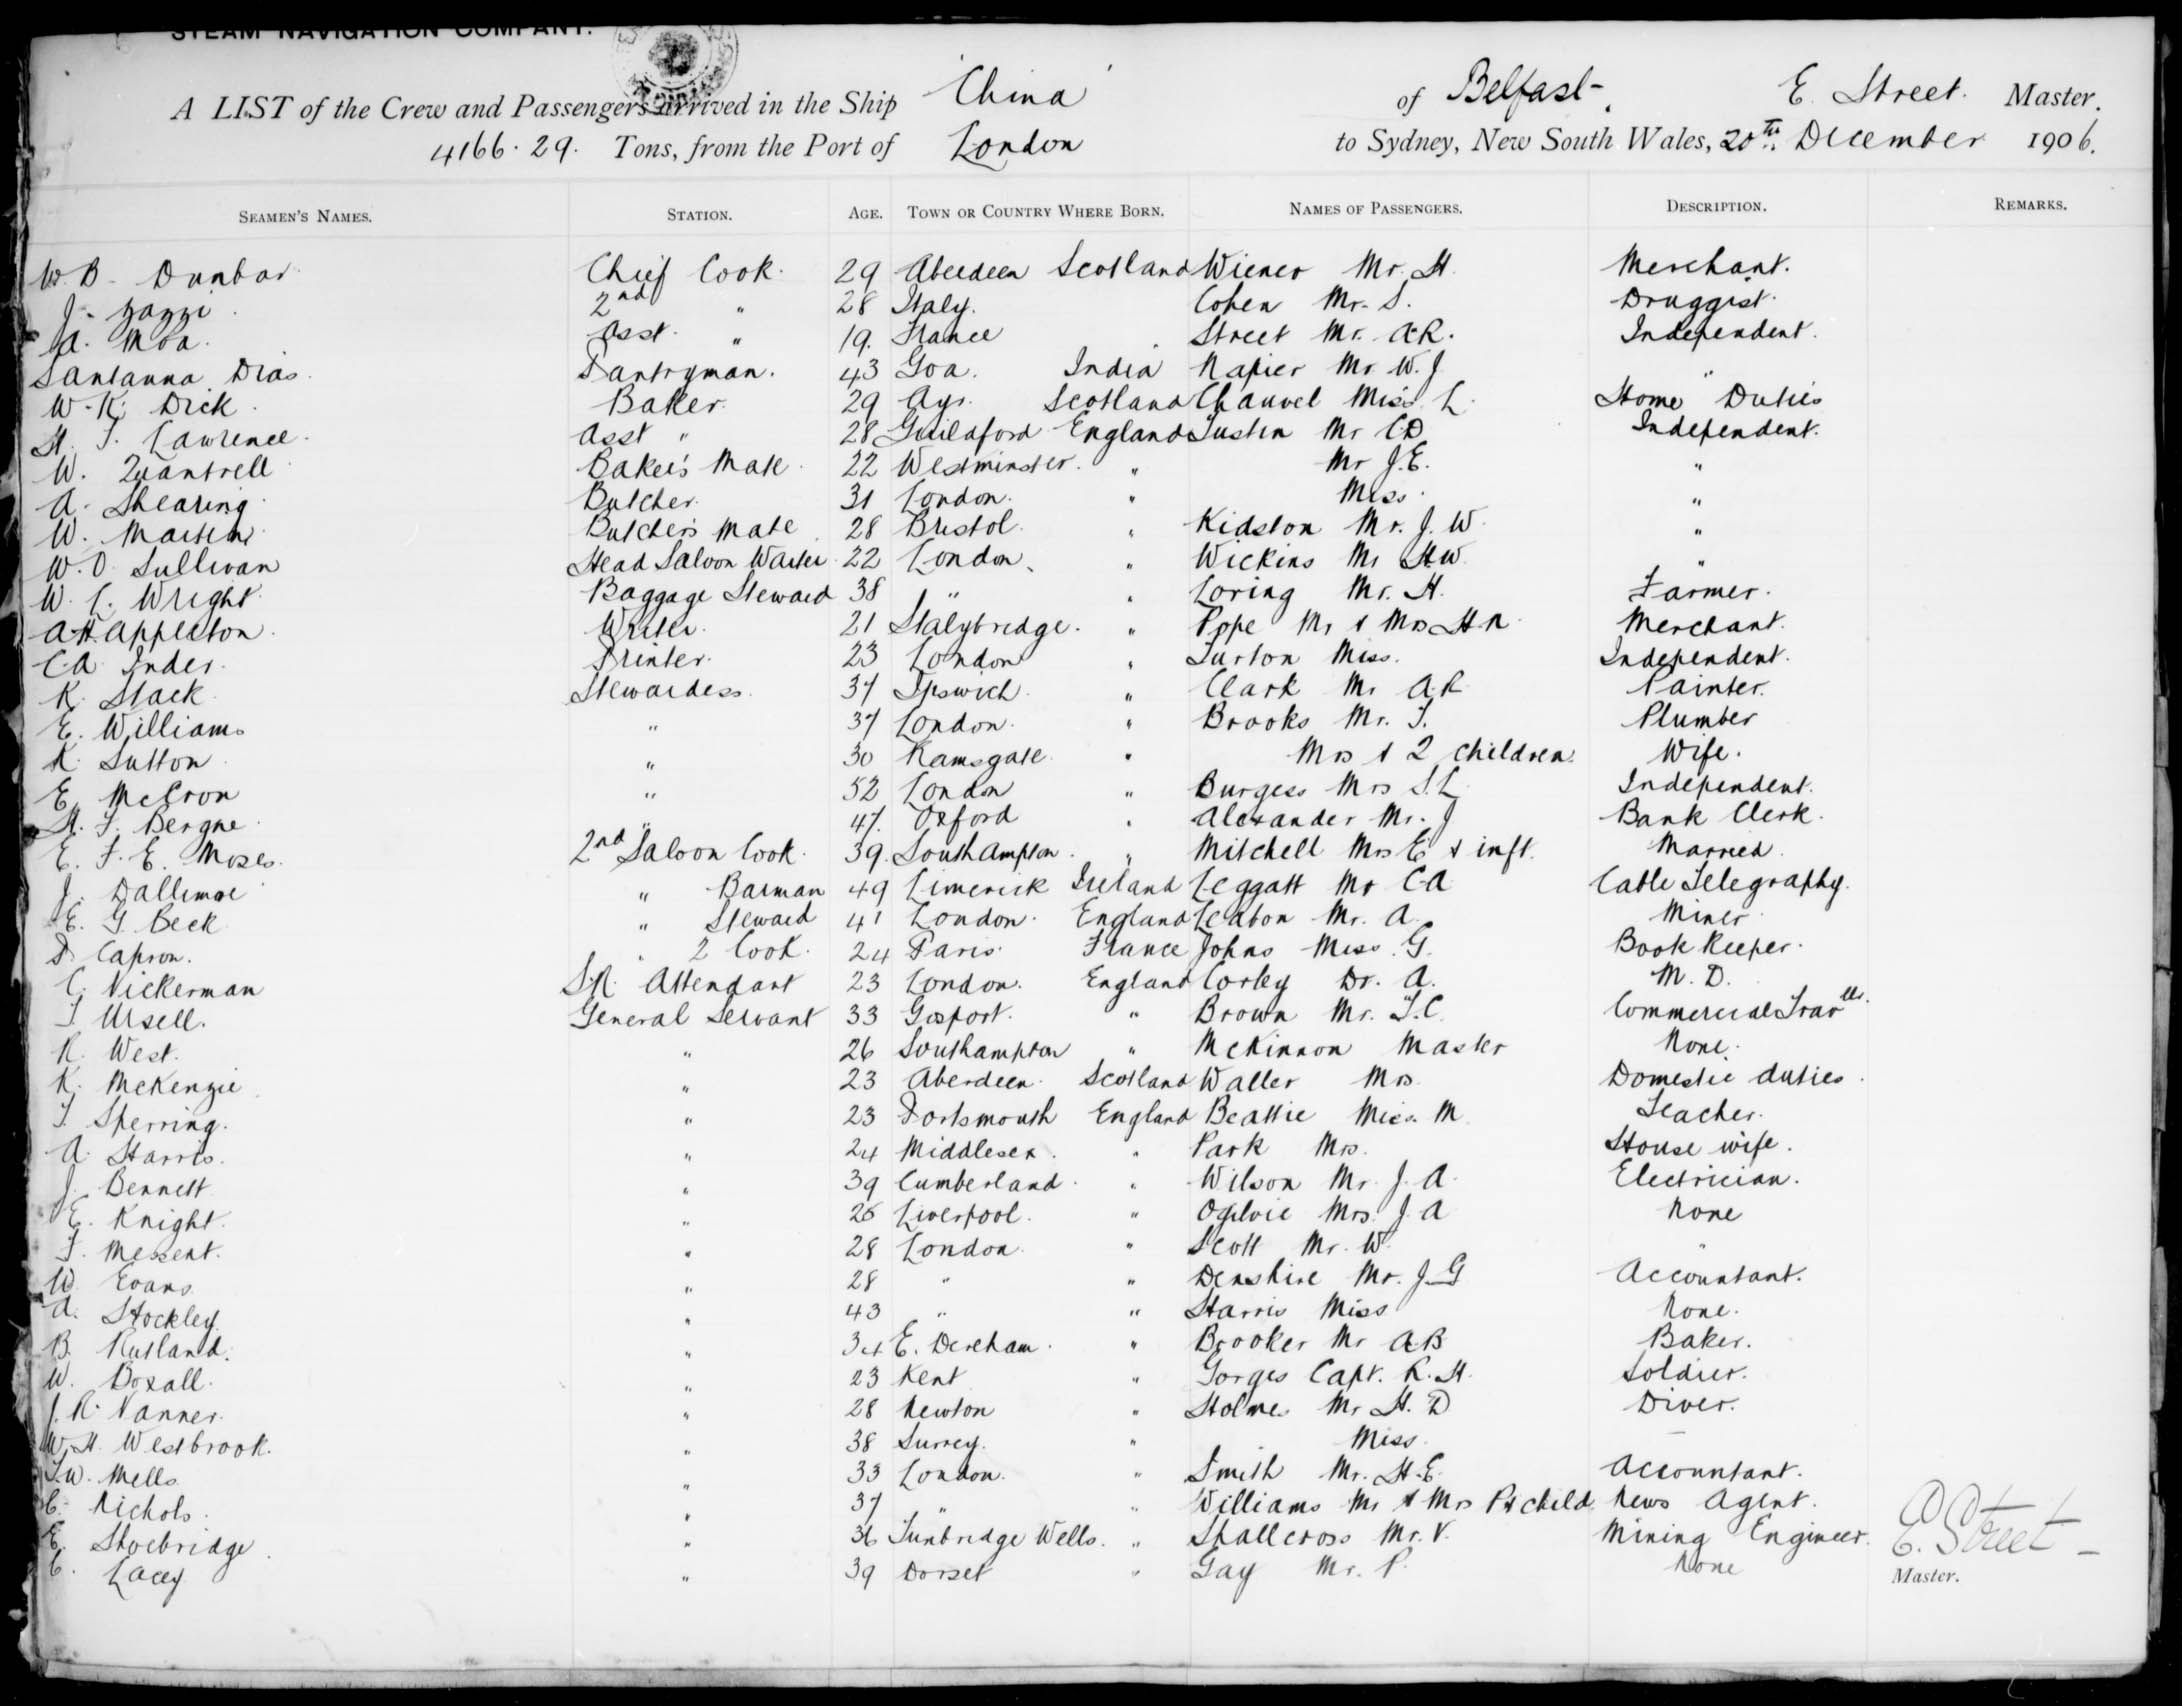 STEAM NAVIGATION COMPANY.
A LIST of the Crew and Passengers arrived in the Ship "China" of Belfast. E. Street. Master.
4166.29. Tons, from the Port of London to Sydney, New South Wales, 20th December 1906.
SEAMEN'S NAMES. STATION. AGE. TOWN OR COUNTRY WHERE BORN. NAMES OF PASSENGERS. DESCRIPTION. REMARKS.
W. B. Dunbar Chief Cook. 29 Aberdeen Scotland Wiener Mr. H. Merchant.
J. Zazzi 2nd " 28 Italy. Cohen Mr. S. Druggist.
A. Moa. Asst. " 19. France Street Mr. A.R. Independent.
Santanna Dias. Pantryman. 43 Goa. India Napier Mr W. J. "
W. K. Dick. Baker. 29 Ayr. Scotland Chauvel Miss L. Home Duties
H. T. Lawrence. Asst " 28 Guildford England Justin Mr C.D Independent.
W. Quantrell Baker's Mate. 22 Westminster. " Mr J.E. "
A. Shearing. Butcher. 31 London. " Miss. "
W. Martin. Butcher's Mate. 28 Bristol. " Kidston Mr. J. W. "
W. O. Sullivan Head Saloon Waiter. 22 London. " Wickins Mr H.W. "
W. L. Wright. Baggage Steward 38 " " Loring Mr. H. Farmer.
A.H. Appleton. Writer. 21 Stalybridge. " Pope Mr & Mrs H R Merchant.
C.A. Inder. Printer. 23 London " Turton Miss. Independent.
K. Slack. Stewardess. 37 Ipswich. " Clark Mr A.R Painter.
E. Williams " 37 London. " Brooks Mr. T. Plumber
K. Sutton. " 30 Ramsgate. " Mrs & 2 children. Wife.
E. McCron " 52 London " Burgess Mrs S.L. Independent.
H. F. Bergne. " 47. Oxford " Alexander Mr. J Bank Clerk.
E. F. E. Moses. 2nd Saloon Cook. 39. Southampton. " Mitchell Mrs E & inft. Married.
J. Dallimore " Barman 49 Limerick Ireland Leggatt Mr C.A Cable Telegraphy.
E. G. Beck " Steward 41 London. England Leabon Mr. A. Miner.
P. Capron. " 2 Cook. 24 Paris. France Johns Miss. G. Book Keeper.
C. Vickerman S.R. Attendant 23 London. England Corley Dr. A. M. D.
T. Ursell. General Servant 33 Gosport. " Brown Mr. T.C. Commercial Travller.
R. West. " 26 Southampton " McKinnon Master None.
K. McKenzie " 23 Aberdeen. Scotland Waller Mrs. Domestic duties.
T. Sperring. " 23 Portsmouth England Beattie Miss. M. Teacher.
A. Harris. " 24 Middlesex. " Park Mrs. House wife.
J. Bennett " 39 Cumberland. " Wilson Mr. J. A. Electrician.
E. Knight. " 26 Liverpool. " Ogilvie Mrs. J. A None
F. Messent. " 28 London. " Scott Mr. W. "
W. Evans " 28 " " Denshire Mr. J. G Accountant.
A. Stockley. " 43 " " Harris Miss None.
B. Rutland. " 34 E. Dereham. " Brooker Mr A.B Baker.
W. Boxall. " 23 Kent " Gorges Capt. R. H. Soldier.
J. R. Vanner. " 28 Newton " Holmes Mr H. D Diver.
W. H. Westbrook. " 38 Surrey. " Miss. —
T.W. Mells " 33 London. " Smith Mr. H. E. Accountant.
C. Nichols. " 37 " " Williams Mr & Mrs P & child. News Agent.
E. Shoebridge. " 36 Tunbridge Wells. " Shallcross Mr. V. Mining Engineer.
C. Lacey " 39 Dorset " Gay Mr. P. None
E. Street
Master.